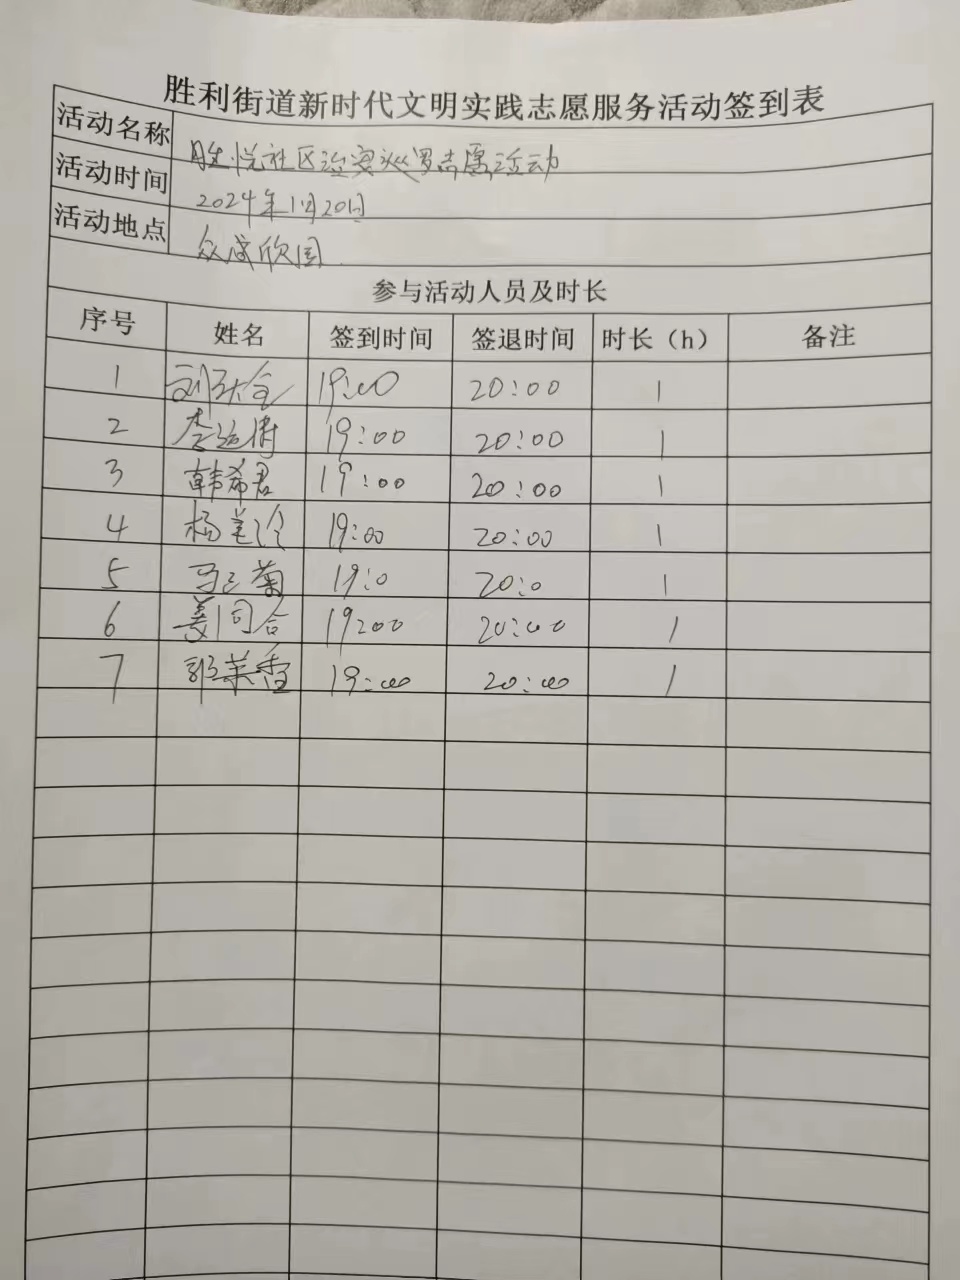 胜利街道新时代文明实践志愿服务活动签到表
活动名称 胜悦社区治安巡罗志愿活动
活动时间 2024年11月20日
活动地点 众成欣园
参与活动人员及时长
序号 姓名 签到时间 签退时间 时长（h） 备注
1 19:00 20:00 1
2 李运清 19:00 20:00 1
3 韩希君 19:00 20:00 1
4 杨美玲 19:00 20:00 1
5 马三菊 19:0 20:0 1
6 姜同合 19:00 20:00 1
7 郭英香 19:00 20:00 1